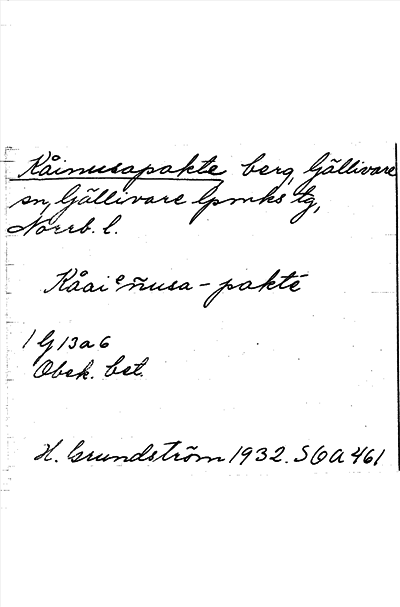 Kåinusapakte berg, Gällivare
sn, Gällivare lpmks tg,
Norrb. l.
Kåaiᵉñusa-pakte
1 G 13 a 6
Obek. bet.
H. Grundström 1932. SOA 461